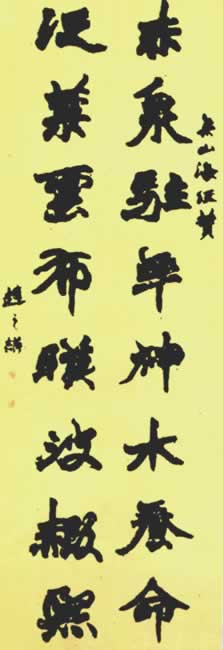 山海經贊
赤泉駐年神木養命
泛葉雲布暎波赮熙
趙之謙